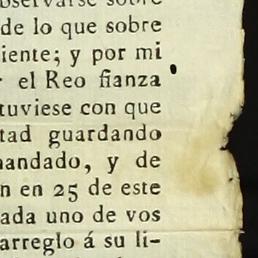 observarse sobre
de lo que sobre
iente; y por mi
el Reo fianza
tuviese con que
tad guardando
mandado, y de
n en 25 de este
ada uno de vos
arreglo á su li-